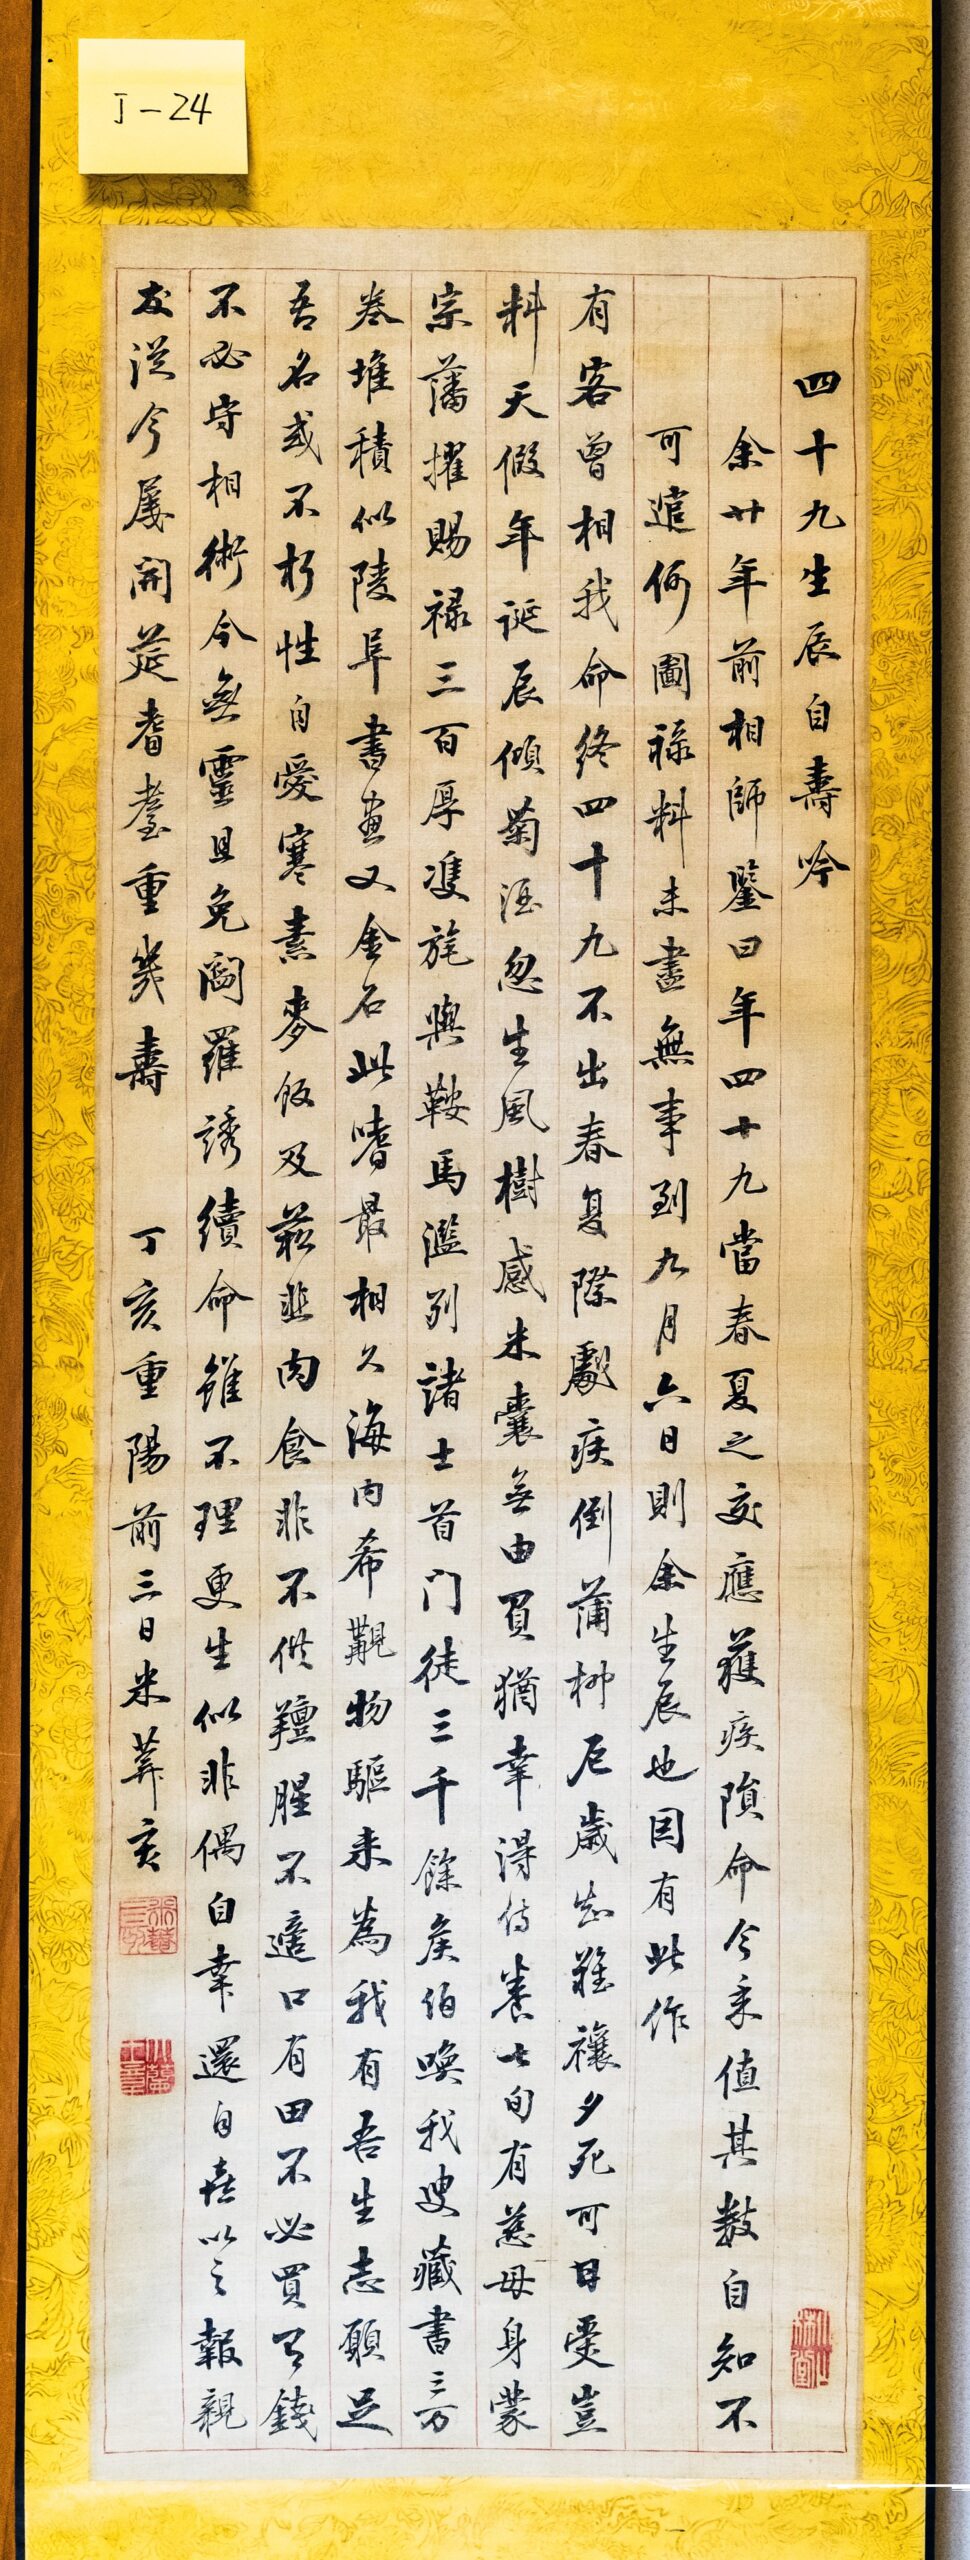 J-24
四十九生辰自壽吟
余廿年前相師鑒曰年四十九當春夏之交應獲疾隕命今年值其數自知不
可逭何圖祿料未盡無事到九月六日則余生辰也因有此作
有客曾相我命終四十九不出春夏際劇疾倒蒲柳厄歲知難禳夕死可甘受豈
料天假年誕辰傾菊酒忽生風樹感米囊無由負猶幸得侍養七旬有慈母身蒙
宗藩擢賜祿三百厚旌與鞍馬濫列諸士首門徒三千餘侯伯喚我叟藏書三万
卷堆積似陵阜書画又金石此嗜最相久海內希覯物驅来為我有吾生志願足
吾名或不朽性自愛寒素麥飯及菘韭肉食非不供羶腥不適口有田不必買有錢
不必守相術今無靈且免閻羅誘續命雖不理更生似非偶自幸還自喜以之報親
友從今屢開筵耆耋重幾壽 丁亥重陽前三日米葊亥